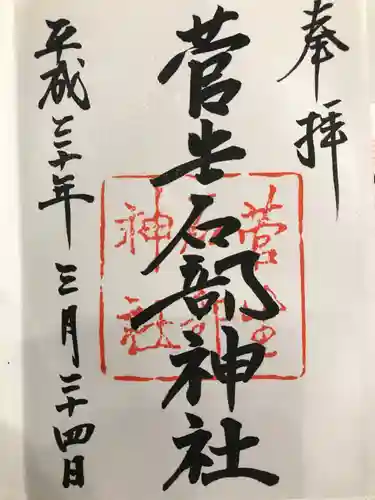 奉拝
菅生石部神社
菅生
石部
神社
平成三十年三月二十四日